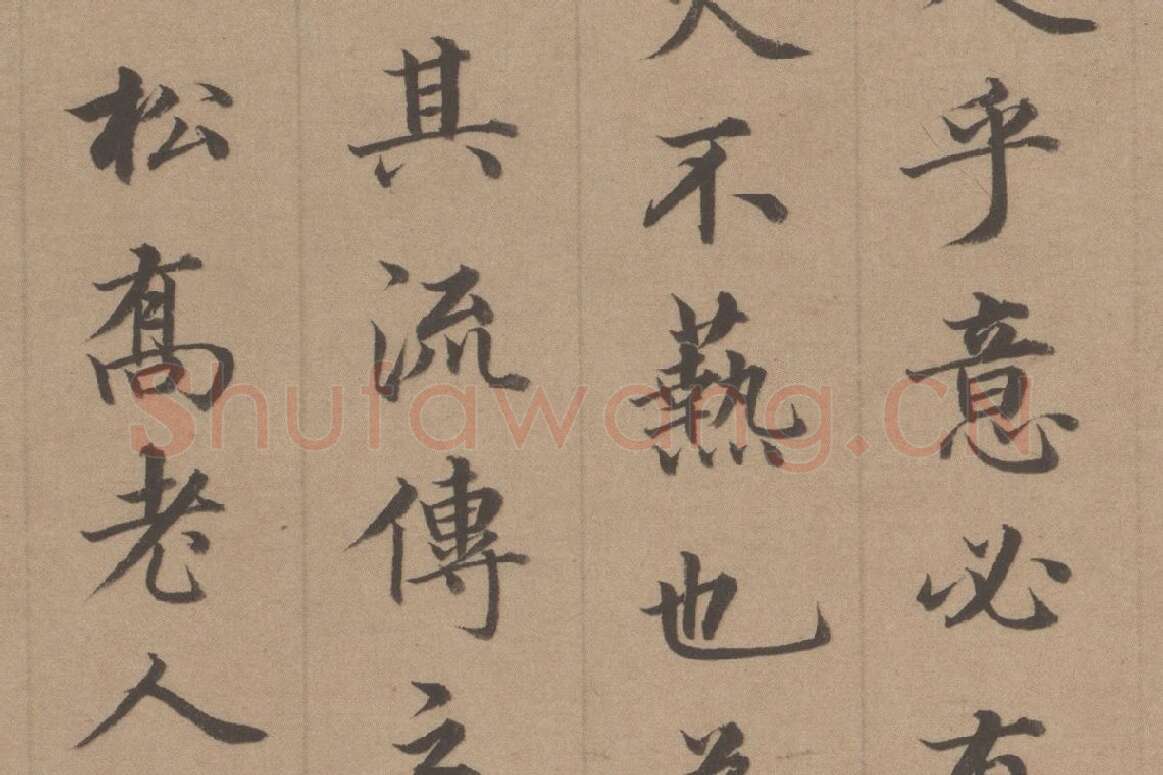 乎意必有
不爇也
其流傳
松髙老人
Shufawang.cn